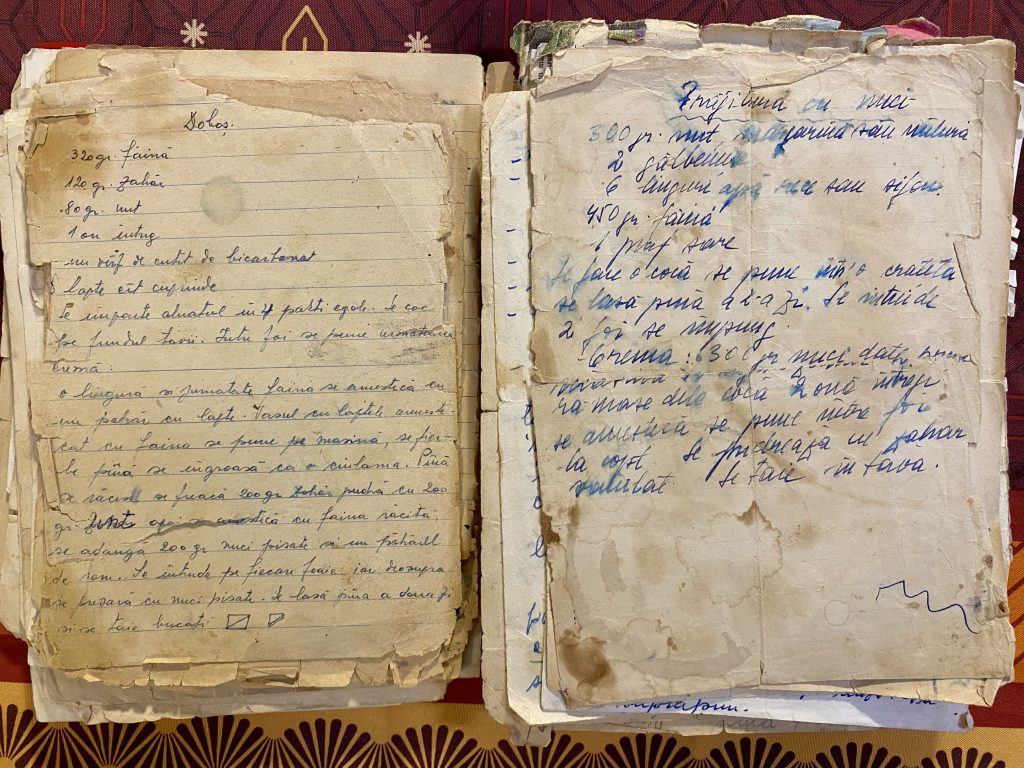 Doboș.
320 gr. făină
120 gr. zahăr
80 gr. unt
1 ou întreg
un vîrf de cuțit de bicarbonat
lapte cît cuprinde
Se împarte aluatul în 4 parti egale. Se coc
pe fundul tăvii. Între foi se pune urmatoarea
cremă:
o lingura si jumatate faina se amestică cu
un pahar cu lapte. Vasul cu laptele ameste-
cat cu faina se pune pe masină, se fier-
be pînă se ingroasă ca o ciulama. Pînă
se răcește se freacă 200 gr zahăr pudră cu 200
gr. unt apoi se amestică cu faina răcită,
se adauga 200 gr nuci pisate si un păhărel
de rom. Se intinde pe fiecare foaie iar deasupra
se presară cu nuci pisate. Se lasă pîna a doua zi
si se taie bucati
cu nuci
300 gr. unt margarină sau untură
2 gălbenuș
6 linguri apă rece sau sifon
450 gr. făină
1 praf sare
Se face o cocă se pune intr'o
se lasă pînă a 2-a zi. Se întinde
2 foi se împung.
Crema: 300 gr nuci date
ramase dela cocă 2 ouă întregi
se amestică se pune între foi
la copt se pudrează cu zahar
vanilat Se taie în tavă.